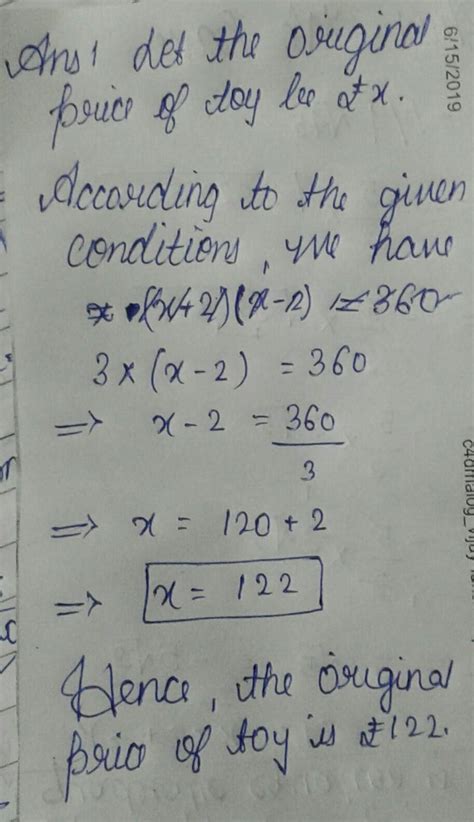 Ans1 Let the original
price of toy be ₹x.
According to the given
conditions, we have
x (x+2)(x-2) = 360
3 × (x - 2) = 360
⇒ x - 2 = 360/3
⇒ x = 120 + 2
⇒ x = 122
Hence, the original
price of toy is ₹122.
6/15/2019